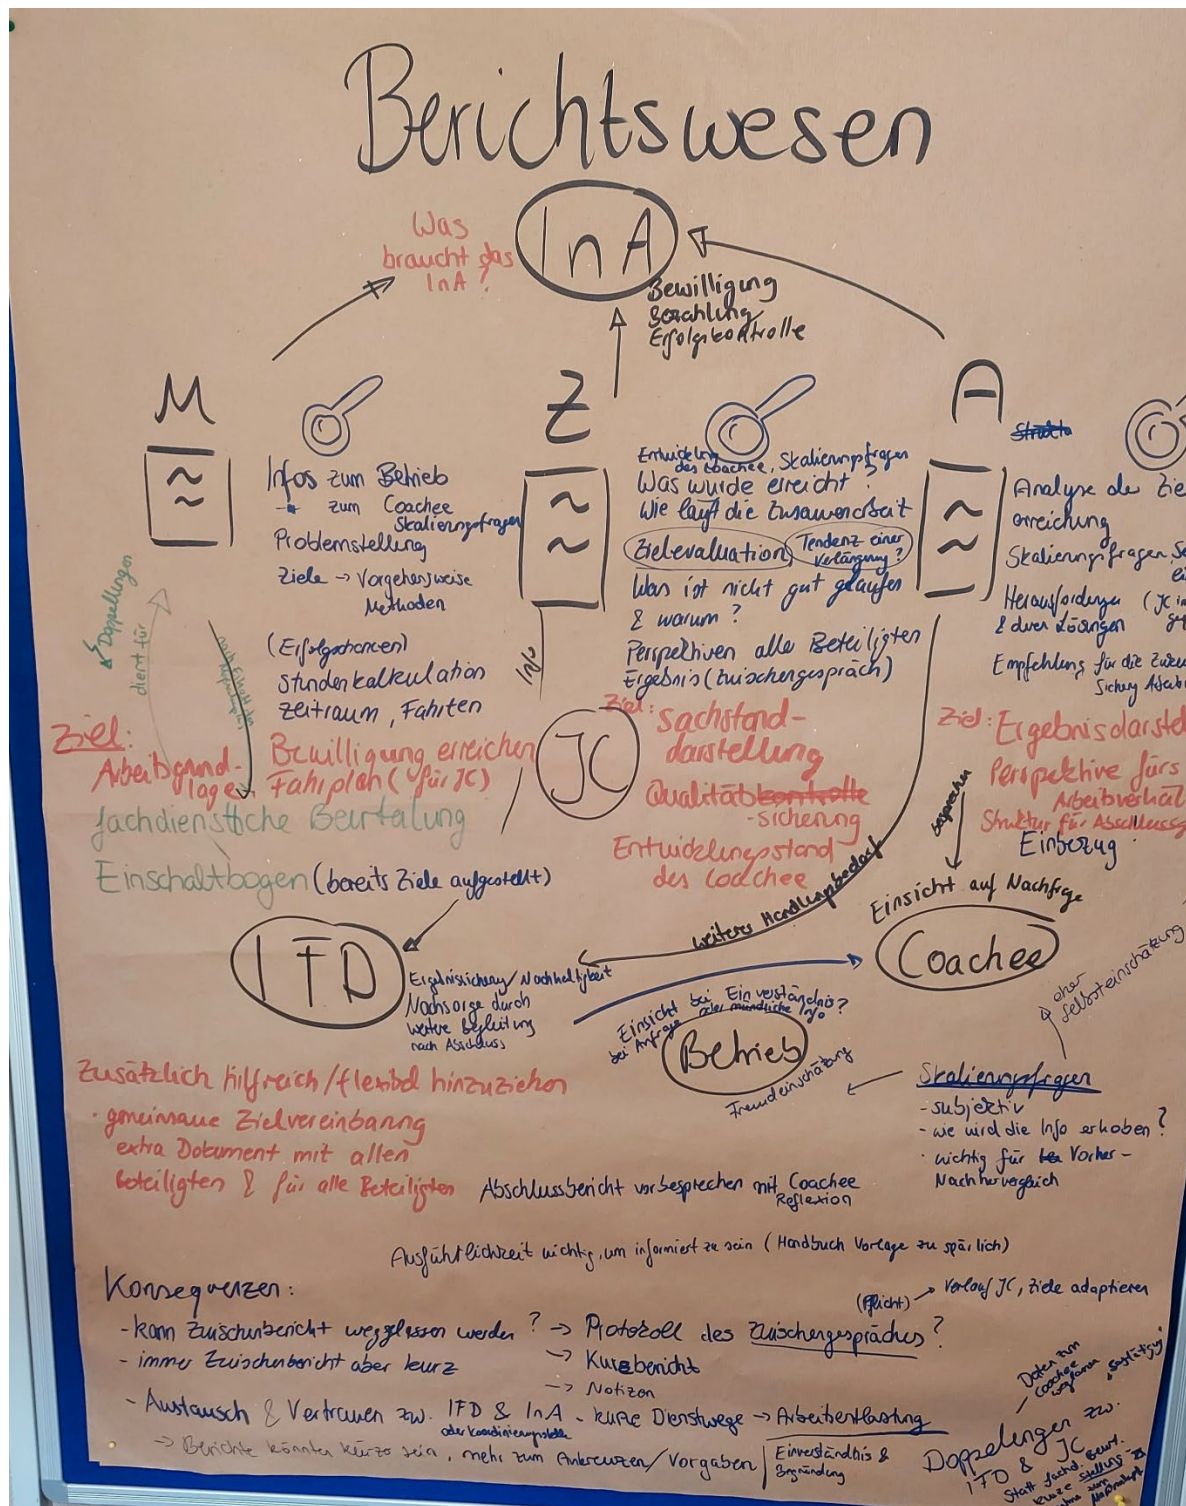 Berichtswesen
InA
Was
braucht das
InA?
Bewilligung
Bezahlung
Erfolgskontrolle
M
Infos zum Betrieb
zum Coachee
Skalierungsfragen
Problemstellung
Ziele → Vorgehensweise
Methoden
(Erfolgschancen)
Stundenkalkulation
Zeitraum, Fahrten
Doppellungen
dient für
Ziel:
Arbeitsgrund-
lagen
Bewilligung erreichen
Fahrplan (für JC)
fachdienstliche Beurteilung
Einschaltbogen (bereits Ziele aufgestellt)
Z
Entwicklung
des Coachee, Skalierungsfragen
Was wurde erreicht?
Wie läuft die Zusammenarbeit
Zielevaluation
Tendenz einer
Verlängerung?
Was ist nicht gut gelaufen
& warum?
Perspektiven alle Beteiligten
Ergebnis (Zwischengespräch)
Info
JC
Ziel: Sachstand-
darstellung
Qualitätskontrolle
-sicherung
Entwicklungsstand
des Coachee
A
Struktu
Analyse der Ziel
erreichung
Skalierungsfragen, Se
ei
Herausforderungen (JC in
& deren Lösungen
Empfehlung für die Zuku
Ziel: Ergebnisdarstel
Perspektive fürs
Arbeitsverhäl
Struktur für Abschlussg
Einbezug
besprechen
Einsicht auf Nachfrage
Coachee
weiterer Handlungsbedarf
IFD
Ergebnissicherung/Nachhaltigkeit
Nachsorge durch
weitere Begleitung
nach Abschluss
Einsicht bei Einverständnis?
bei Anfrage oder mündliche Info
Betrieb
Fremdeinschätzung
eher
Selbsteinschätzung
Skalierungsfragen
- subjektiv
- wie wird die Info erhoben?
· wichtig für Vorher-
Nachhervergleich
Zusätzlich hilfreich/flexibel hinzuziehen
· gemeinsame Zielvereinbarung
extra Dokument mit allen
beteiligten & für alle Beteiligten
Abschlussbericht vorbesprechen mit Coachee
Reflexion
Ausführlichkeit wichtig, um informiert zu sein (Handbuch Vorlage zu spärlich)
Konsequenzen:
(Pflicht) → Verlauf JC, Ziele adaptieren
- kann Zwischenbericht weggelassen werden? → Protokoll des Zwischengespräches?
- immer Zwischenbericht aber kurz
→ Kurzbericht
→ Notizen
- Austausch & Vertrauen zw. IFD & InA - kurze Dienstwege → Arbeitsentlastung
oder Koordinierungsstelle
→ Berichte könnten kürzer sein, mehr zum Ankreuzen/Vorgaben
Einverständnis &
Begründung
Daten zum
Coachee
weglassen
Doppelungen zw.
IFD & JC
Statt fachd. Beurt.
kurze Stellung-